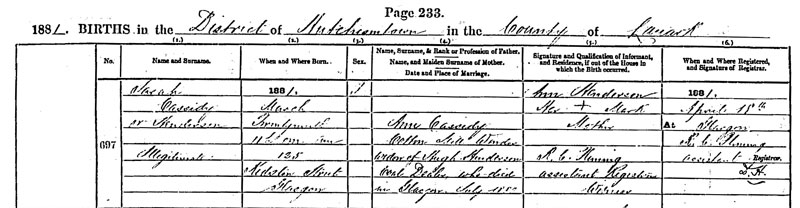 Page 233.
1881. BIRTHS in the District of Hutchesontown in the County of Lanark
(1.) (2.) (3.) (4.) (5.) (6.)
No. Name and Surname. When and Where Born. Sex. Name, Surname, & Rank or Profession of Father. Name, and Maiden Surname of Mother. Date and Place of Marriage. Signature and Qualification of Informant, and Residence, if out of the House in which the Birth occurred. When and Where Registered, and Signature of Registrar.
Sarah 1881. f Ann Henderson 1881.
Cassidy March Her + Mark April 11th
or Henderson Ann Cassidy Mother At Glasgow
697 11h m Cotton Mill Winder R. C. Fleming
Illegitimate 125 widow of Hugh Henderson R. C. Fleming assistant Registrar.
Street Coal Dealer, who died assistant Registrar
Glasgow in Glasgow July 18 Witness